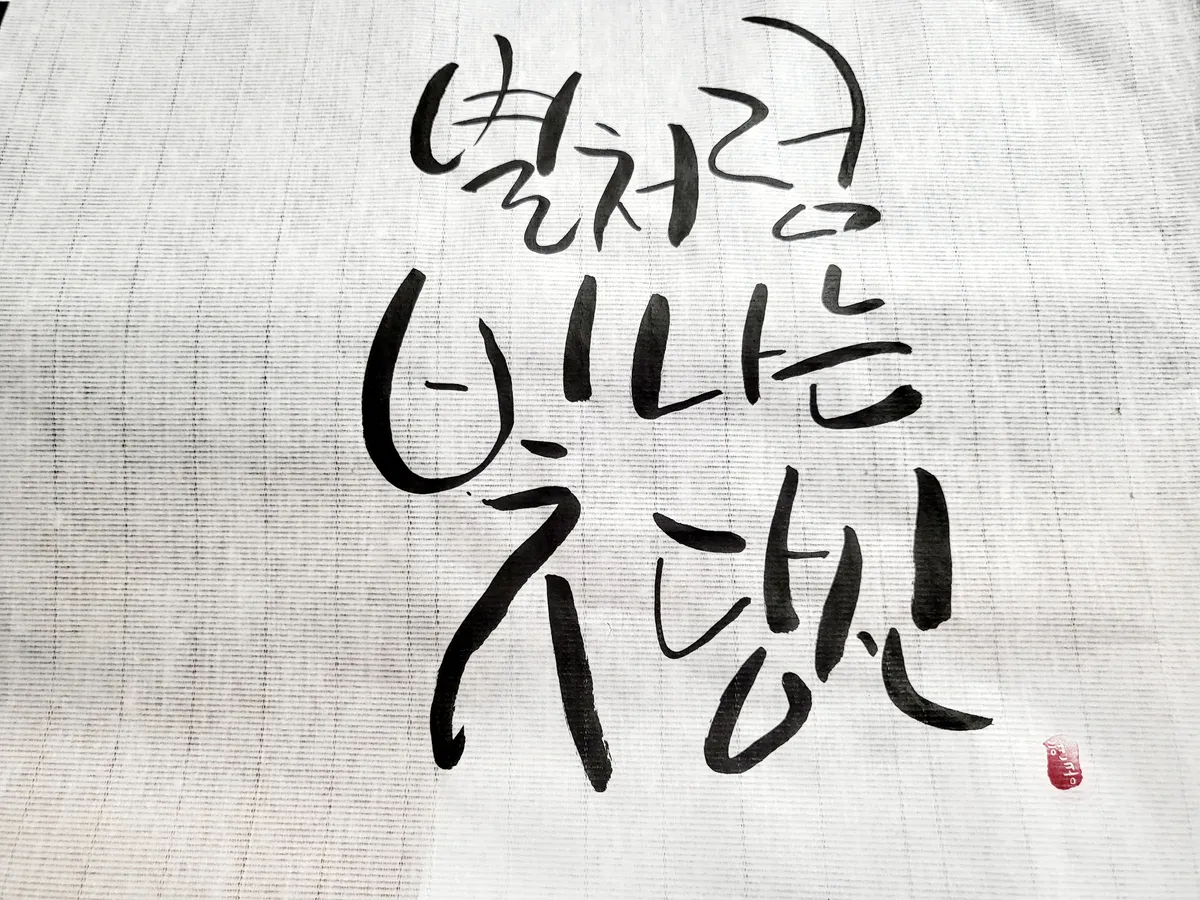 별처럼
빛나는
당신